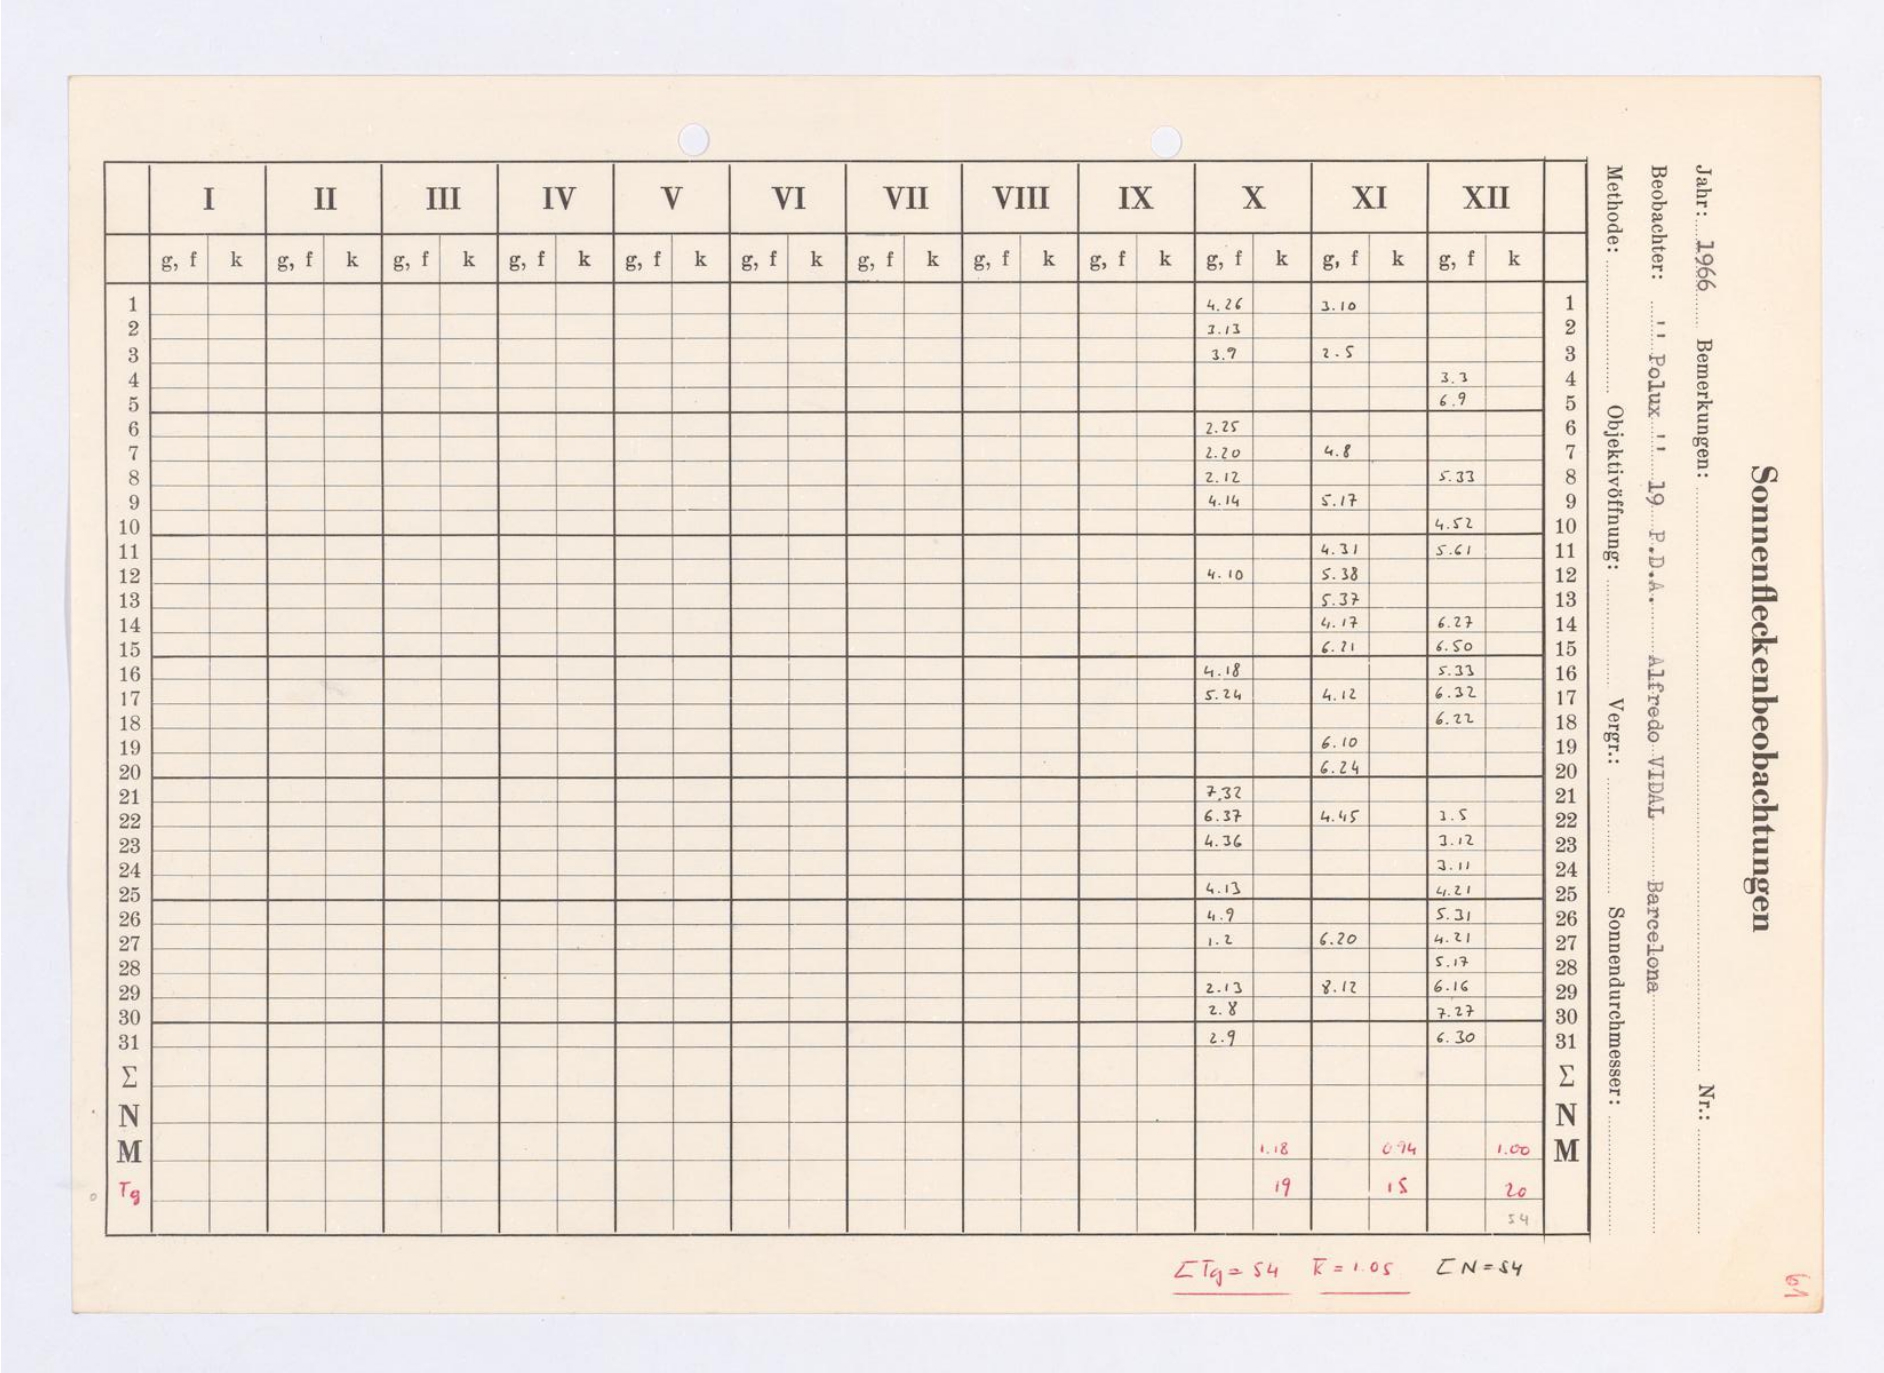 Sonnenfleckenbeobachtungen
Jahr: 1966 Bemerkungen: Nr.:
Beobachter: '' Polux '' 19 P.D.A. Alfredo VIDAL Barcelona
Methode: Objektivöffnung: Vergr.: Sonnendurchmesser:
I II III IV V VI VII VIII IX X XI XII
g, f k g, f k g, f k g, f k g, f k g, f k g, f k g, f k g, f k g, f k g, f k g, f k
1 4.26 3.10 1
2 3.13 2
3 3.9 2.5 3
4 3.3 4
5 6.9 5
6 2.25 6
7 2.20 4.8 7
8 2.12 5.33 8
9 4.14 5.17 9
10 4.52 10
11 4.31 5.61 11
12 4.10 5.38 12
13 5.37 13
14 4.17 6.27 14
15 6.21 6.50 15
16 4.18 5.33 16
17 5.24 4.12 6.32 17
18 6.22 18
19 6.10 19
20 6.24 20
21 7.32 21
22 6.37 4.45 3.5 22
23 4.36 3.12 23
24 3.11 24
25 4.13 4.21 25
26 4.9 5.31 26
27 1.2 6.20 4.21 27
28 5.17 28
29 2.13 8.12 6.16 29
30 2.8 7.27 30
31 2.9 6.30 31
Σ Σ
N N
M 1.18 0.94 1.00 M
Tg 19 15 20
54
ΣTg = 54 k̄ = 1.05 ΣN = 54
61